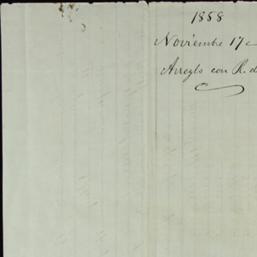 1858
Noviembre 17 c
Arreglo con R. d